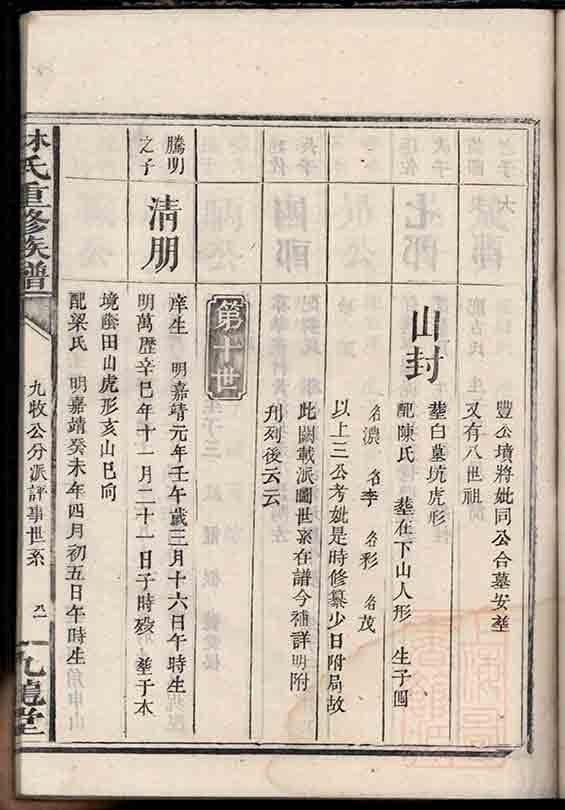 豐公墳將妣同公合墓安塟
又有八世祖
山封
塟白墓坑虎形
配陳氏　塟在下山人形　生子四
名濃　名李　名彩　名茂
以上三公考妣是時修纂少日附局故
此闕載派圖世系在譜今補詳明附
刋列後云云
第十世
騰明
之子
清朋
庠生　明嘉靖元年壬午歲三月十六日午時生
明萬歷辛巳年十一月二十一日子時殁　塟于本
境蔭田山虎形亥山巳向
配梁氏　明嘉靖癸未年四月初五日午時生
林氏重修族譜
九牧公分派評事世系
九龍堂